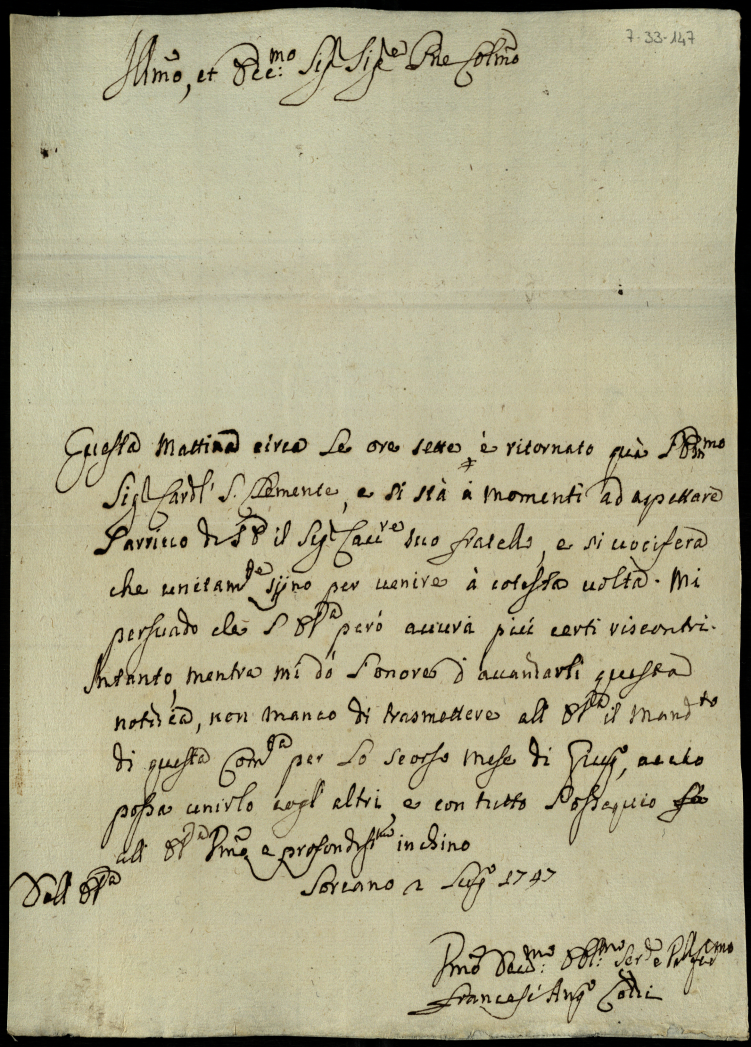 7-33-147
Illmo, et Ecc:mo Sigr Sigre Pne Colmo
Questa Mattina circa le ore sette è ritornato quà l'Emmo
Sigr Cardl' S. Clemente, e si stà à momenti ad aspettare
l'arrivo di il Sigr Cavre suo fratello, e si vocifera
che unitamte sijno per venire à cotesta volta. Mi
persuado che però avurà più certi riscontri.
Intanto, mentre mi dò l'onore d'avanzarli questa
notizia, non manco di trasmettere all' il Mandto
di questa Comtà per lo scorso mese di Giugo, acciò
possa unirlo cogl' altri e con tutto l'ossequio fò
all' Umo e profondissmo inchino
Dell'
Soreano 2 Lugo 1747
Umo Devmo: Obblmo: Serre
Francesco Ango